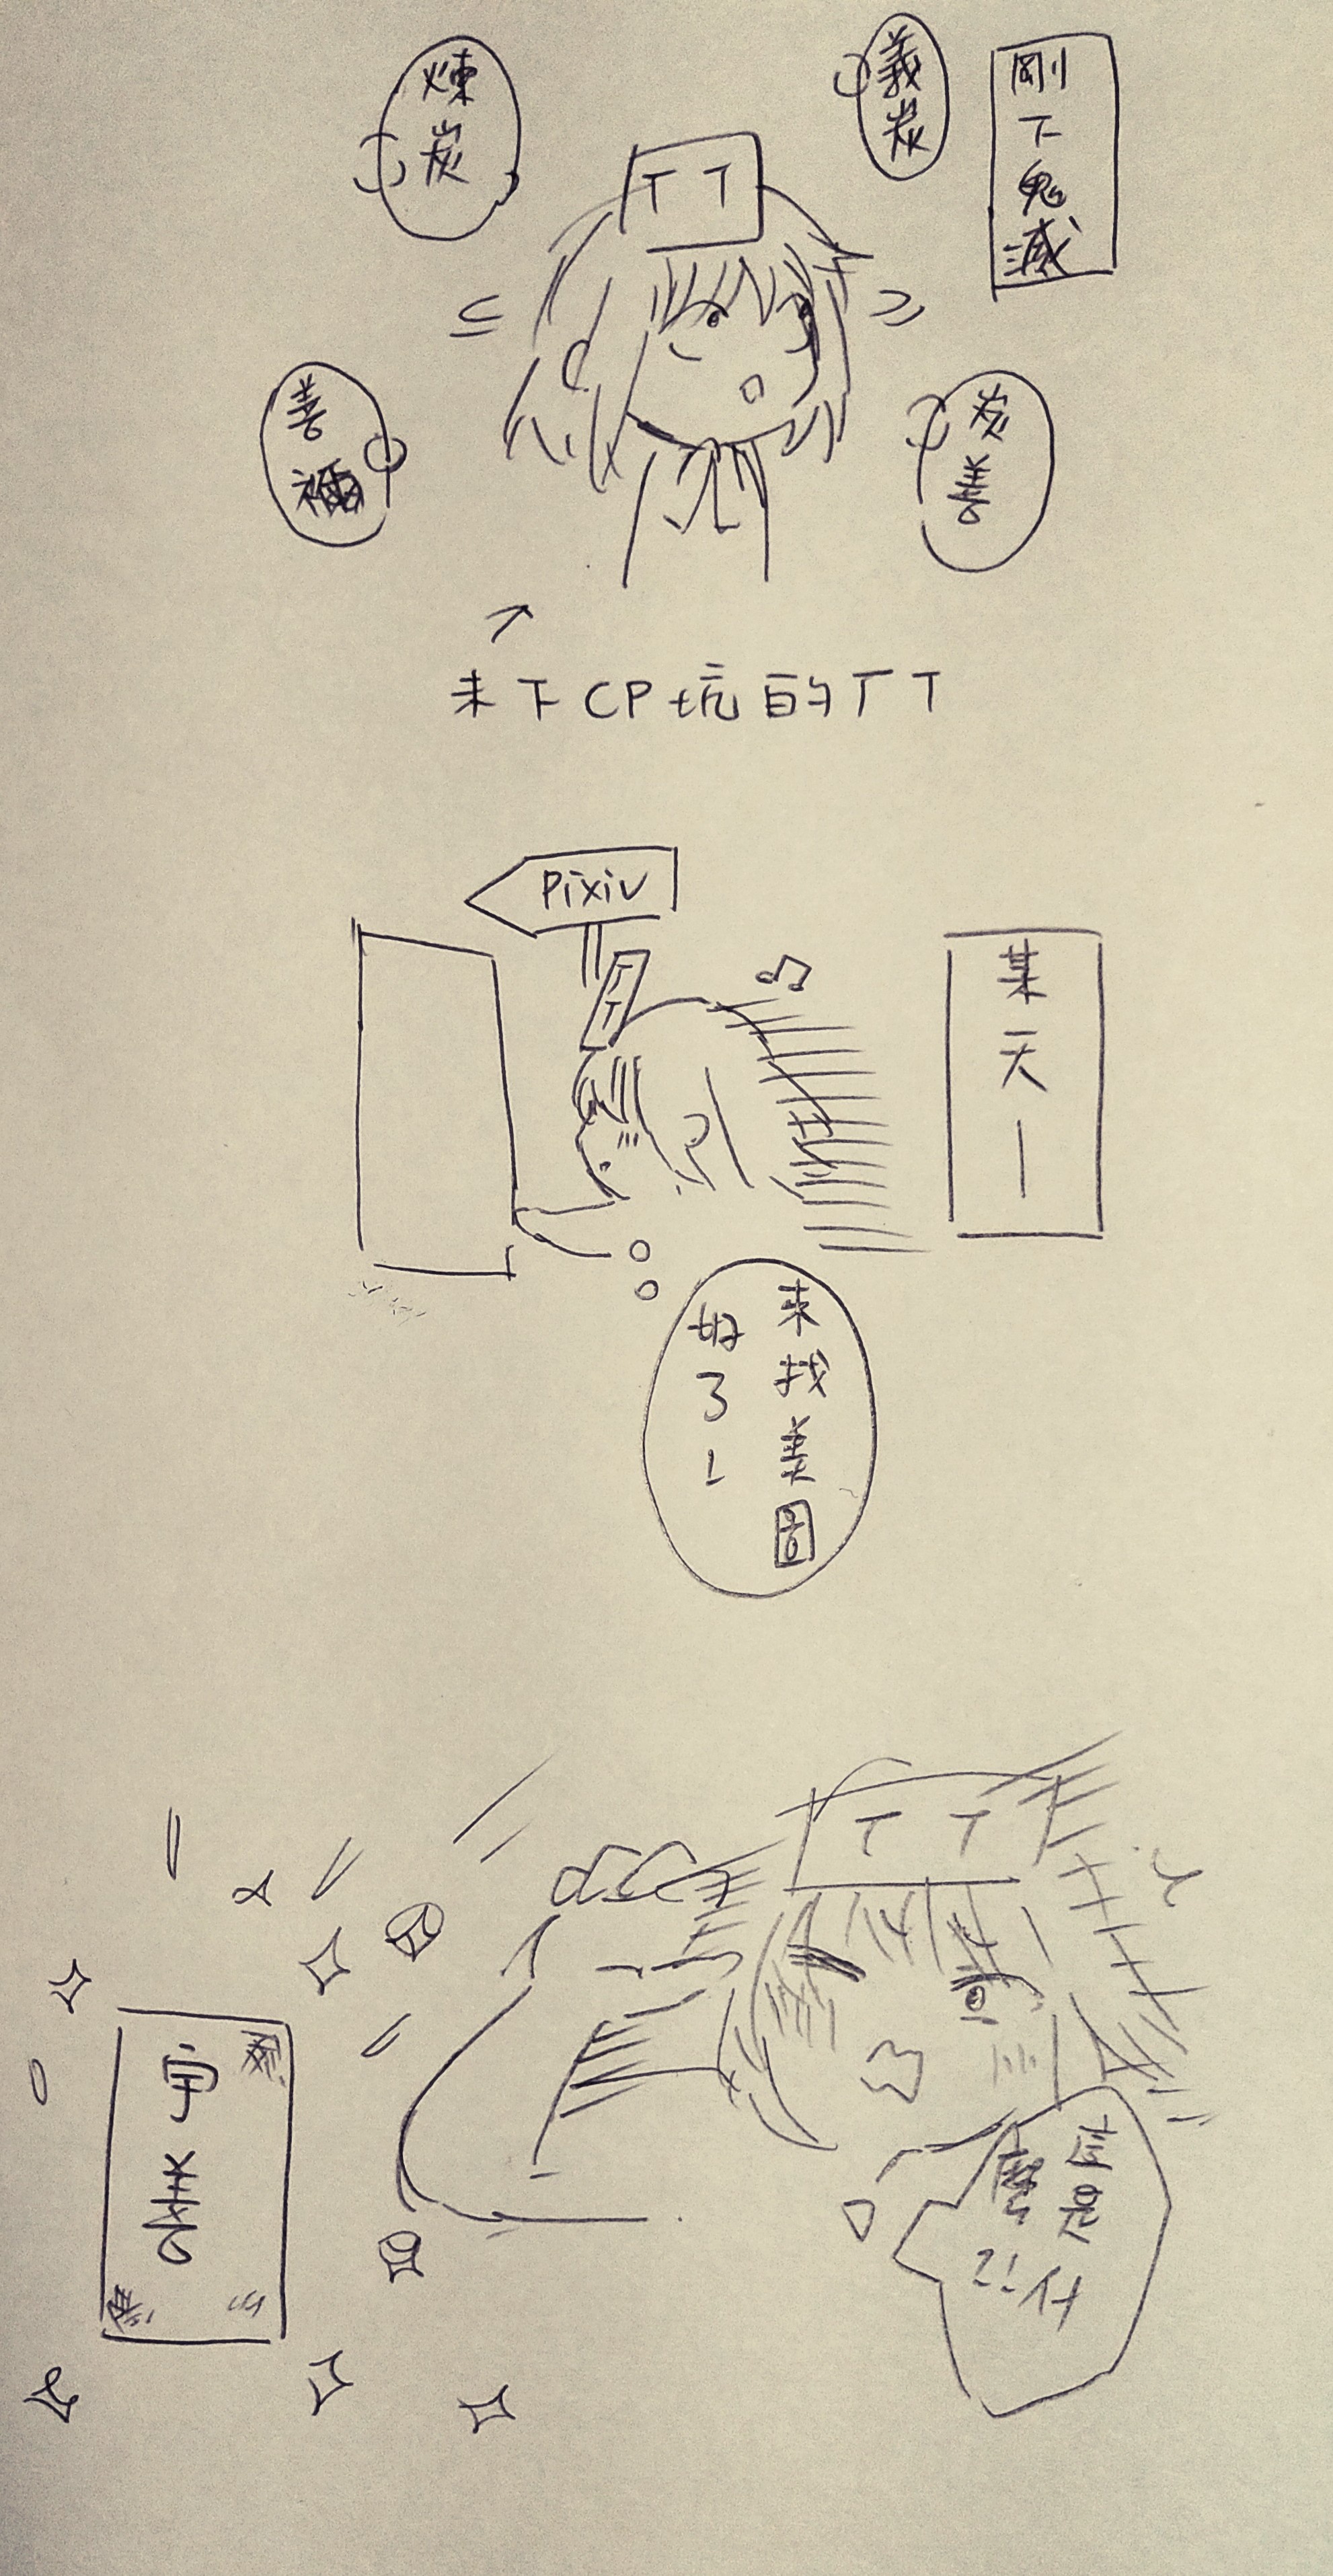 剛下鬼滅
義炭
煉炭
TT
炭善
善禰
未下CP坑的TT
Pixiv
TT
某天—
來找美圖
好了~
TT
宇善
這是什
麼?!